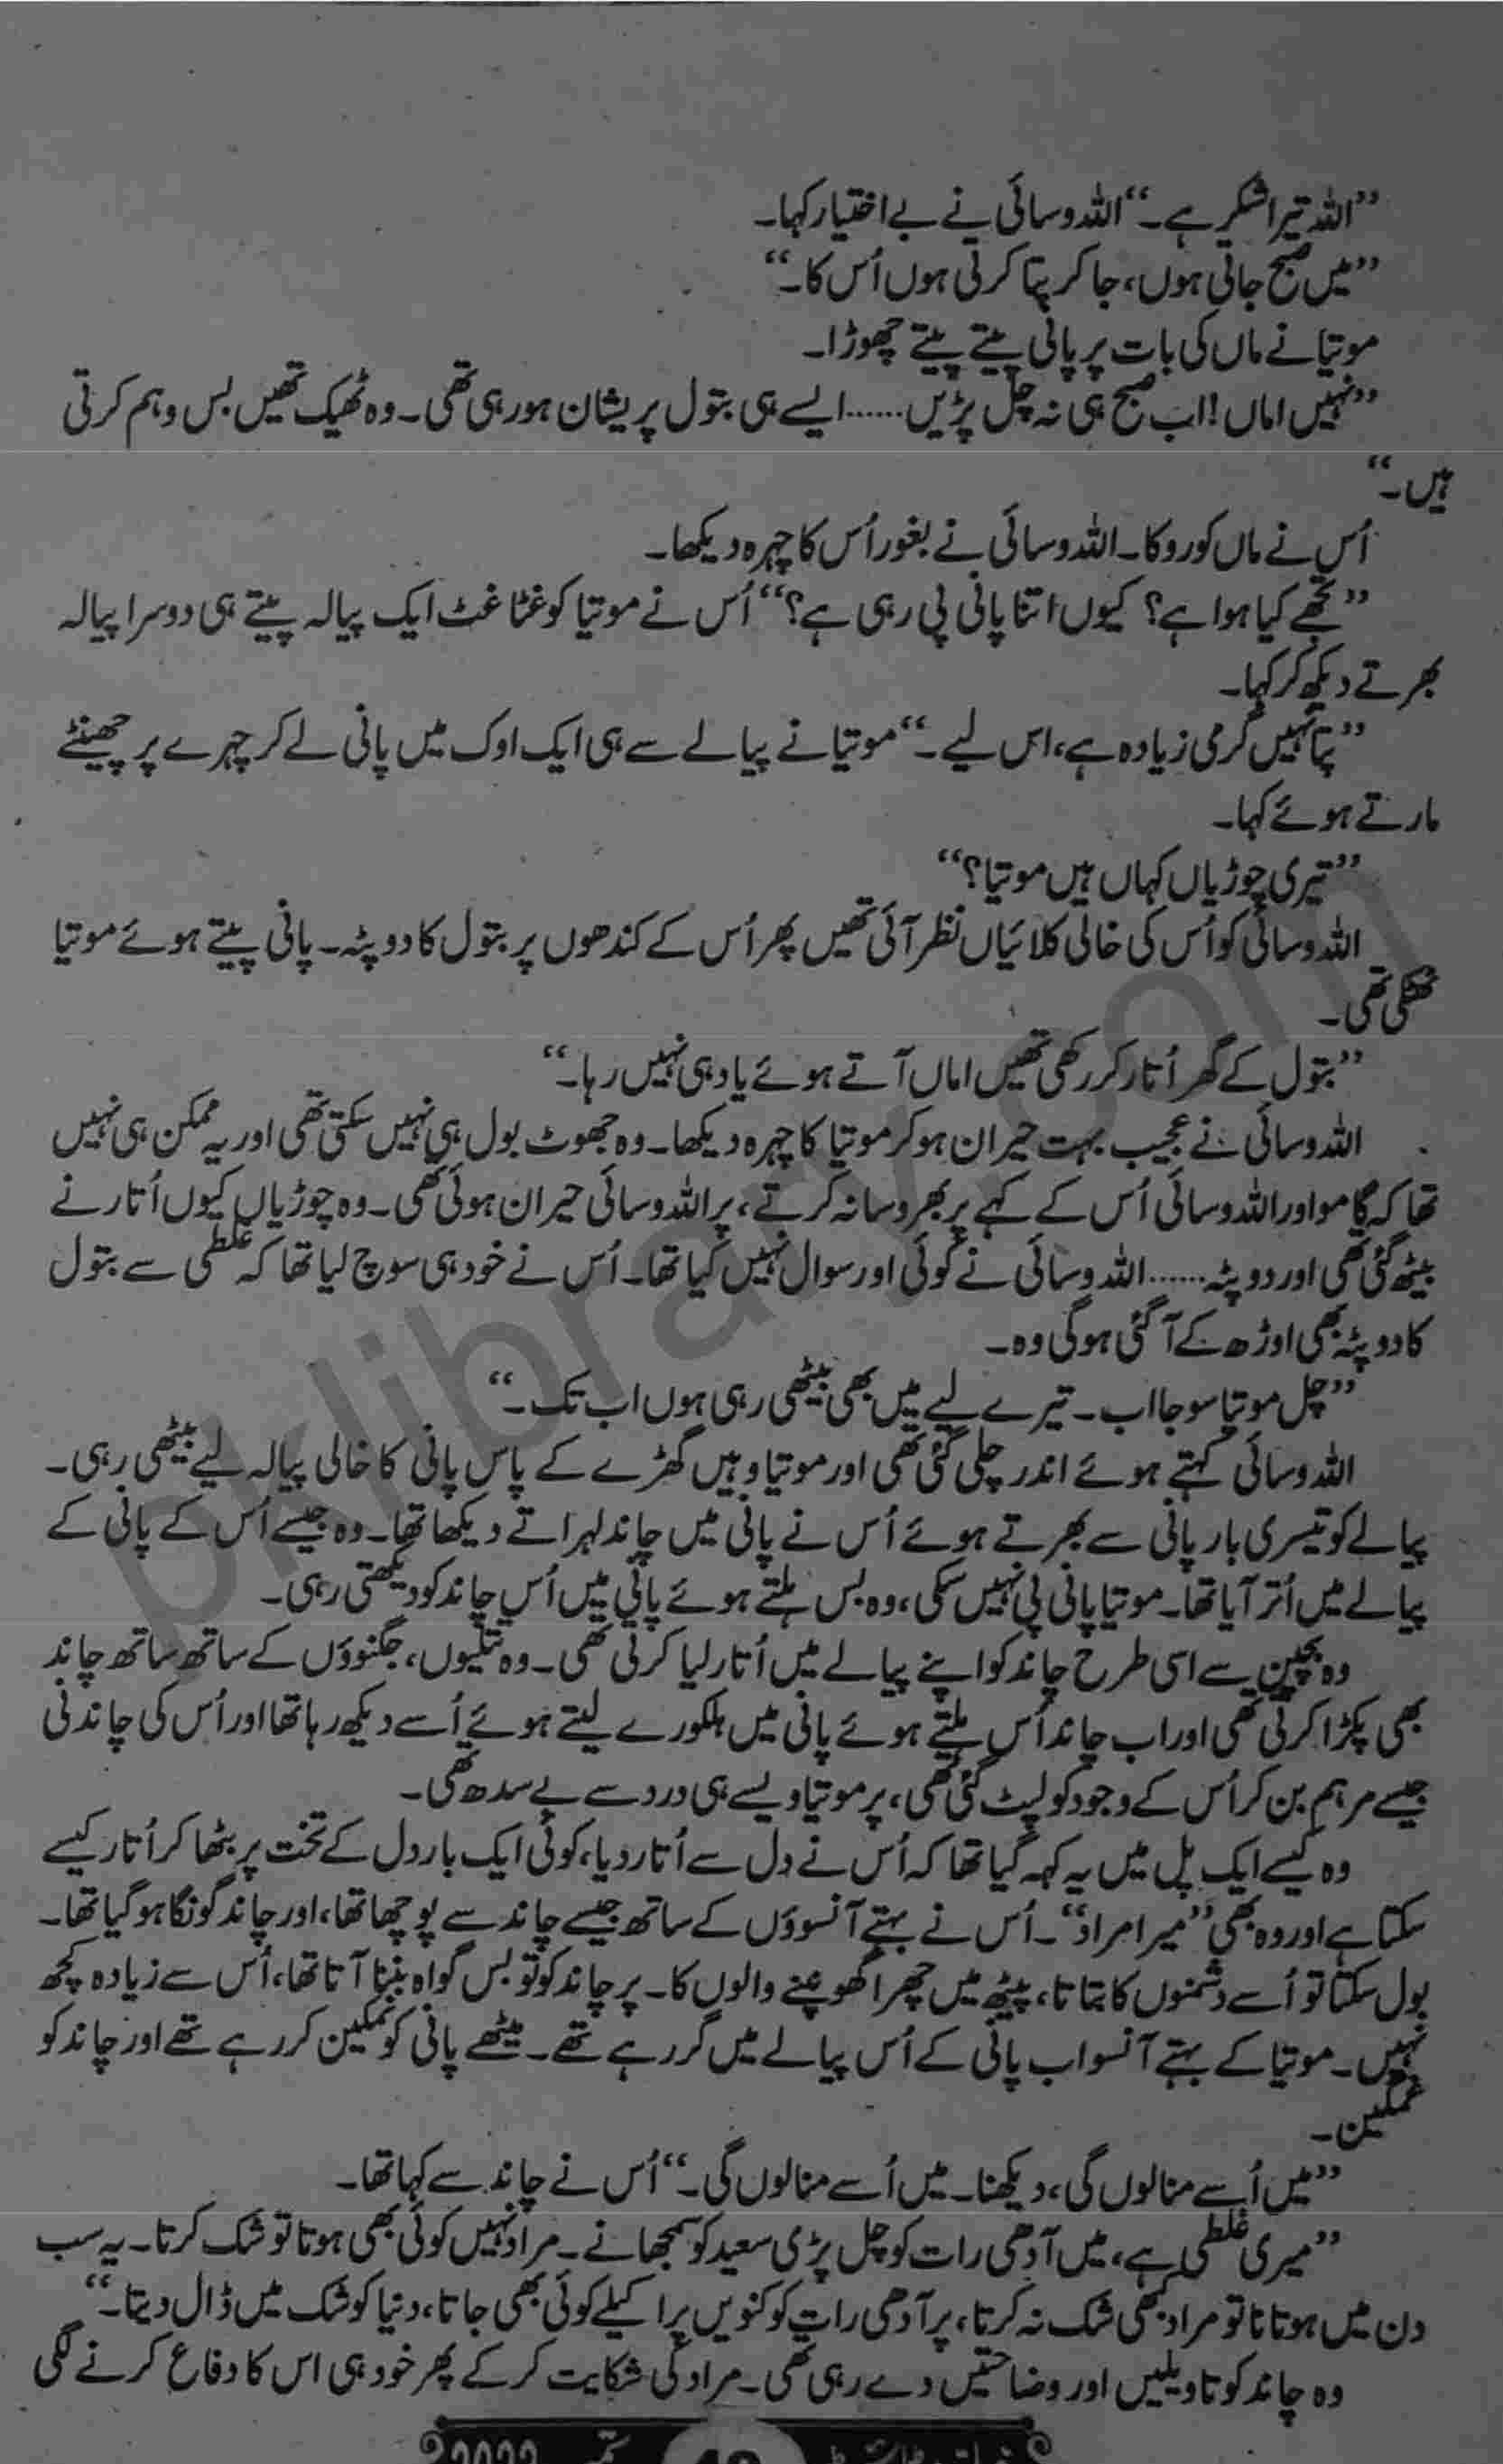 ”اللہ تیرا شکر ہے۔“ اللہ وسائی نے بے اختیار کہا۔
”میں صبح جاتی ہوں، جا کر پتا کرتی ہوں اُس کا۔“
موتیا نے ماں کی بات پر پانی پیتے پیتے چھوڑا۔
”نہیں اماں! اب صبح ہی نہ چل پڑیں...... ایسے ہی بتول پریشان ہو رہی تھی۔ وہ ٹھیک تھیں بس وہم کرتی
ہیں۔“
اُس نے ماں کو روکا۔ اللہ وسائی نے بغور اُس کا چہرہ دیکھا۔
”تجھے کیا ہوا ہے؟ کیوں اتنا پانی پی رہی ہے؟“ اُس نے موتیا کو غٹا غٹ ایک پیالہ پیتے ہی دوسرا پیالہ
بھرتے دیکھ کر کہا۔
”پتا نہیں گرمی زیادہ ہے، اس لیے۔“ موتیا نے پیالے سے ہی ایک اوک میں پانی لے کر چہرے پر چھینٹے
مارتے ہوئے کہا۔
”تیری چوڑیاں کہاں ہیں موتیا؟“
اللہ وسائی کو اُس کی خالی کلائیاں نظر آئی تھیں پھر اُس کے کندھوں پر بتول کا دوپٹہ۔ پانی پیتے ہوئے موتیا
ٹھٹکی تھی۔
”بتول کے گھر اُتار کر رکھی تھیں اماں آتے ہوئے یاد ہی نہیں رہا۔“
اللہ وسائی نے عجیب بہت حیران ہو کر موتیا کا چہرہ دیکھا۔ وہ جھوٹ بول ہی نہیں سکتی تھی اور یہ ممکن ہی نہیں
تھا کہ گامو اور اللہ وسائی اُس کے کہے پر بھروسا نہ کرتے، پر اللہ وسائی حیران ہوئی تھی۔ وہ چوڑیاں کیوں اُتارنے
بیٹھ گئی تھی اور دوپٹہ...... اللہ وسائی نے کوئی اور سوال نہیں کیا تھا۔ اُس نے خود ہی سوچ لیا تھا کہ غلطی سے بتول
کا دوپٹہ بھی اوڑھ کے آ گئی ہو گی وہ۔
”چل موتیا سو جا اب۔ تیرے لیے میں بھی بیٹھی رہی ہوں اب تک۔“
اللہ وسائی کہتے ہوئے اندر چلی گئی تھی اور موتیا وہیں گھڑے کے پاس پانی کا خالی پیالہ لیے بیٹھی رہی۔
پیالے کو تیسری بار پانی سے بھرتے ہوئے اُس نے پانی میں چاند لہراتے دیکھا تھا۔ وہ جیسے اُس کے پانی کے
پیالے میں اُتر آیا تھا۔ موتیا پانی پی نہیں سکی، وہ بس ہلتے ہوئے پانی میں اُس چاند کو دیکھتی رہی۔
وہ بچپن سے اسی طرح چاند کو اپنے پیالے میں اُتار لیا کرتی تھی۔ وہ تتلیوں، جگنوؤں کے ساتھ ساتھ چاند
بھی پکڑا کرتی تھی اور اب چاند اُس ہلتے ہوئے پانی میں ہلکورے لیتے ہوئے اُسے دیکھ رہا تھا اور اُس کی چاندنی
جیسے مرہم بن کر اُس کے وجود کو لپٹ گئی تھی، پر موتیا ویسے ہی درد سے بے سدھ تھی۔
وہ کیسے ایک پل میں یہ کہہ گیا تھا کہ اُس نے دل سے اُتار دیا، کوئی ایک بار دل کے تخت پر بٹھا کر اُتار کیسے
سکتا ہے اور وہ بھی ”میرا مراد“۔ اُس نے بہتے آنسوؤں کے ساتھ جیسے چاند سے پوچھا تھا، اور چاند گونگا ہو گیا تھا۔
بول سکتا تو اُسے دشمنوں کا بتاتا، پیٹھ میں چھرا گھونپنے والوں کا۔ پر چاند کو تو بس گواہ بننا آتا تھا، اُس سے زیادہ کچھ
نہیں۔ موتیا کے بہتے آنسو اب پانی کے اُس پیالے میں گر رہے تھے۔ میٹھے پانی کو نمکین کر رہے تھے اور چاند کو
غمگین۔
”میں اُسے منا لوں گی، دیکھنا۔ میں اُسے منا لوں گی۔“ اُس نے چاند سے کہا تھا۔
”میری غلطی ہے، میں آدھی رات کو چل پڑی سعید کو سمجھانے۔ مراد نہیں کوئی بھی ہوتا تو شک کرتا۔ یہ سب
دن میں ہوتا نا تو مراد کبھی شک نہ کرتا، پر آدھی رات کو کنویں پر اکیلے کوئی بھی جاتا، دنیا کو شک میں ڈال دیتا۔“
وہ چاند کو تاویلیں اور وضاحتیں دے رہی تھی۔ مراد کی شکایت کر کے پھر خود ہی اس کا دفاع کرنے لگی
pklibrary.com
2022